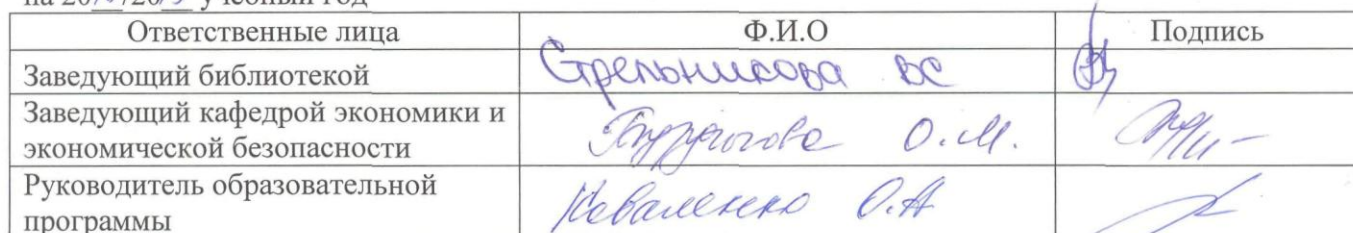 на 20 /20 учебный год
Ответственные лица Ф.И.О Подпись
Заведующий библиотекой Стрельникова ВС
Заведующий кафедрой экономики и
экономической безопасности О.М.
Руководитель образовательной
программы Коваленко О.А